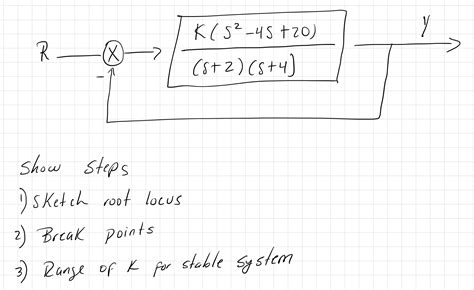 K(S²-4S+20)
Y
R
X
(S+2)(S+4]
-
Show Steps
1) Sketch root locus
2) Break points
3) Range of K for stable system